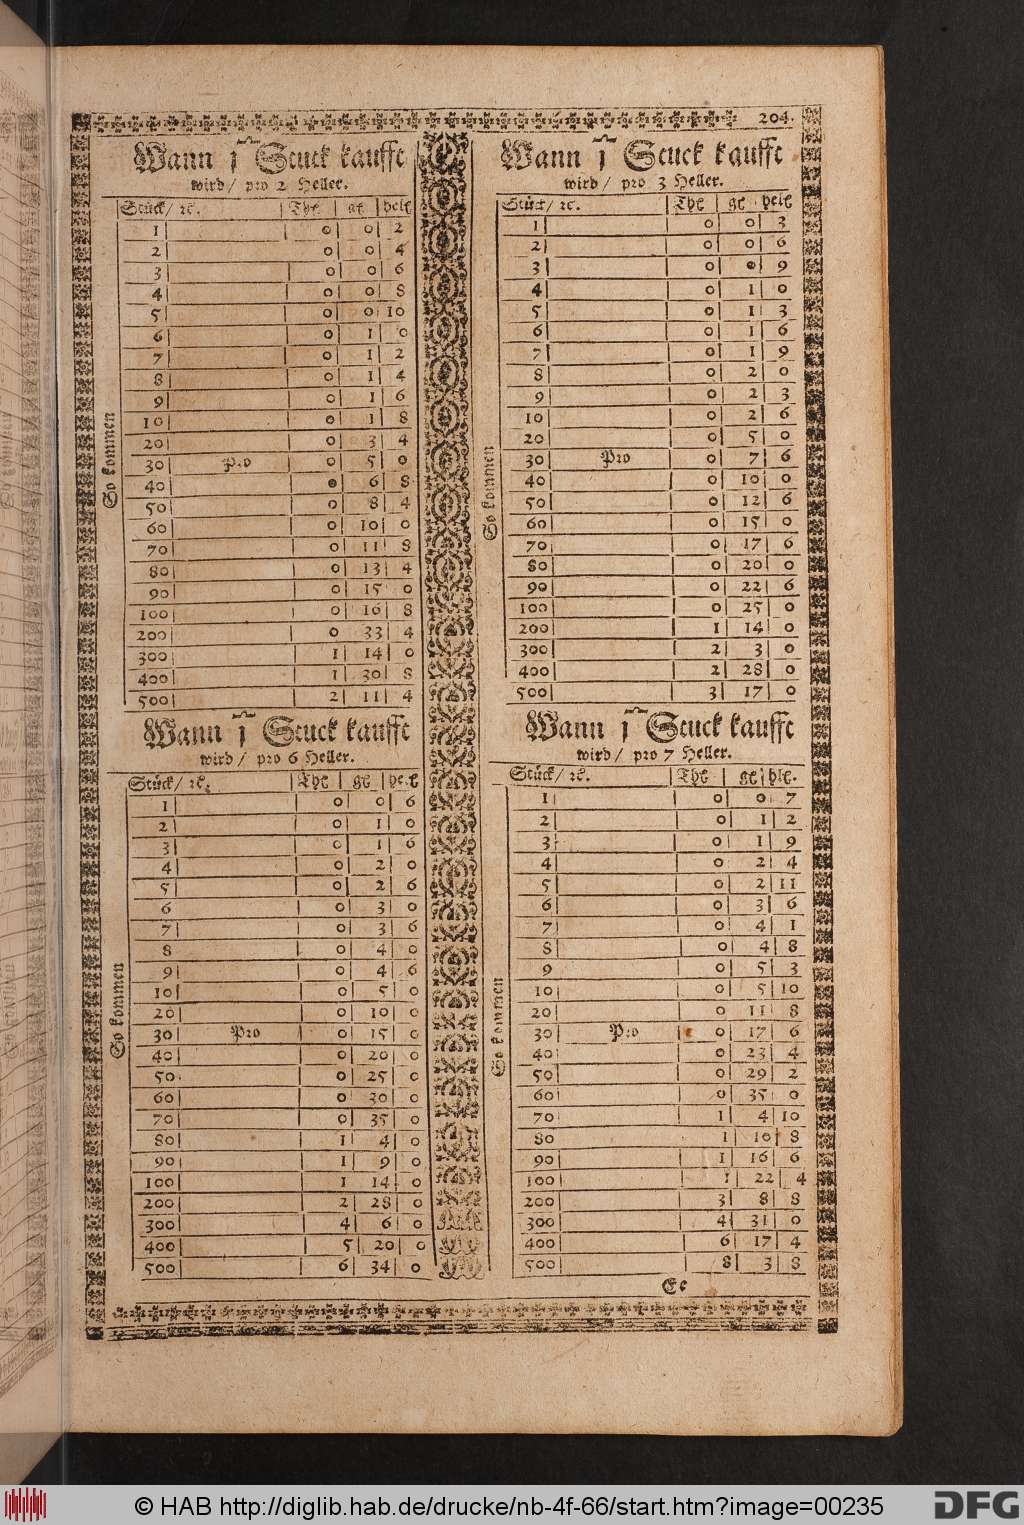 204.
Wann 1 Stuck kaufft
wird / pro 2 Heller.
Stück / ꝛc. Thl gl helł
1 0 0 2
2 0 0 4
3 0 0 6
4 0 0 8
5 0 0 10
6 0 1 0
7 0 1 2
8 0 1 4
9 0 1 6
10 0 1 8
20 0 3 4
30 Pro 0 5 0
40 0 6 8
50 0 8 4
60 0 10 0
70 0 11 8
80 0 13 4
90 0 15 0
100 0 16 8
200 0 33 4
300 1 14 0
400 1 30 8
500 2 11 4
So kommen
Wann 1 Stuck kaufft
wird / pro 3 Heller.
Stück / ꝛc. Thl gl helł
1 0 0 3
2 0 0 6
3 0 0 9
4 0 1 0
5 0 1 3
6 0 1 6
7 0 1 9
8 0 2 0
9 0 2 3
10 0 2 6
20 0 5 0
30 Pro 0 7 6
40 0 10 0
50 0 12 6
60 0 15 0
70 0 17 6
80 0 20 0
90 0 22 6
100 0 25 0
200 1 14 0
300 2 3 0
400 2 28 0
500 3 17 0
So kommen
Wann 1 Stuck kaufft
wird / pro 6 Heller.
Stück / ꝛc. Thl gl helł
1 0 0 6
2 0 1 0
3 0 1 6
4 0 2 0
5 0 2 6
6 0 3 0
7 0 3 6
8 0 4 0
9 0 4 6
10 0 5 0
20 0 10 0
30 Pro 0 15 0
40 0 20 0
50 0 25 0
60 0 30 0
70 0 35 0
80 1 4 0
90 1 9 0
100 1 14 0
200 2 28 0
300 4 6 0
400 5 20 0
500 6 34 0
So kommen
Wann 1 Stuck kaufft
wird / pro 7 Heller.
Stück / ꝛc. Thl gl hlł.
1 0 0 7
2 0 1 2
3 0 1 9
4 0 2 4
5 0 2 11
6 0 3 6
7 0 4 1
8 0 4 8
9 0 5 3
10 0 5 10
20 0 11 8
30 Pro 0 17 6
40 0 23 4
50 0 29 2
60 0 35 0
70 1 4 10
80 1 10 8
90 1 16 6
100 1 22 4
200 3 8 8
300 4 31 0
400 6 17 4
500 8 3 8
So kommen
Ee
© HAB http://diglib.hab.de/drucke/nb-4f-66/start.htm?image=00235
DFG